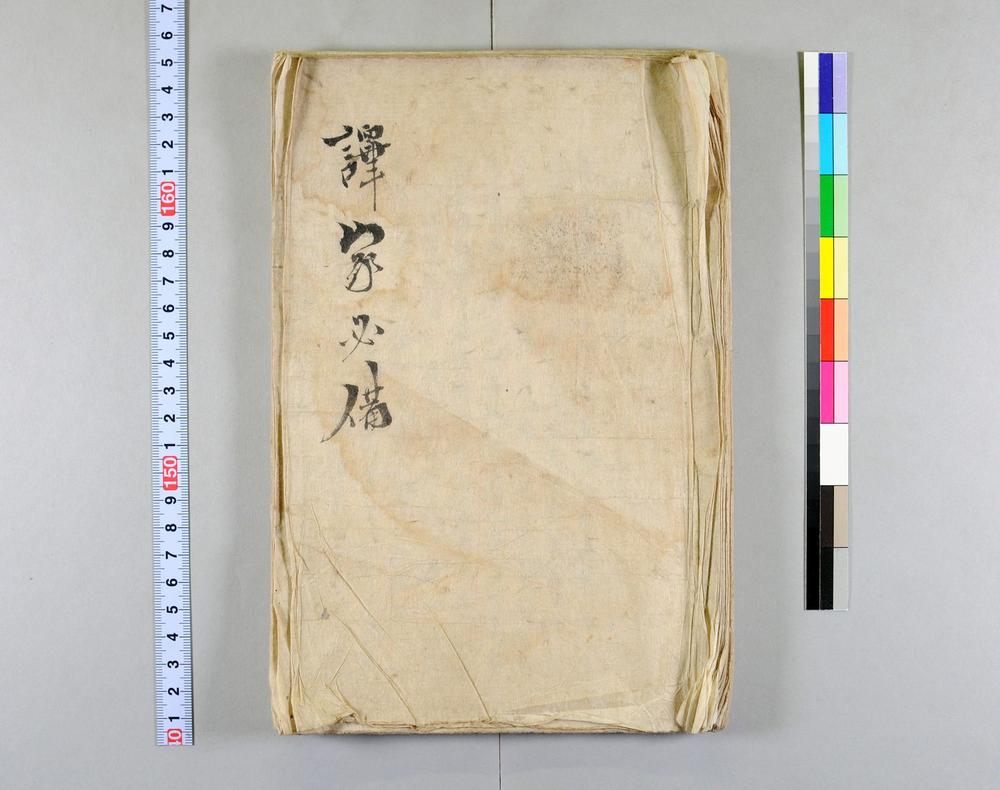 譯家必備
7
6
5
4
3
2
1
160
9
8
7
6
5
4
3
2
1
150
9
8
7
6
5
4
3
2
1